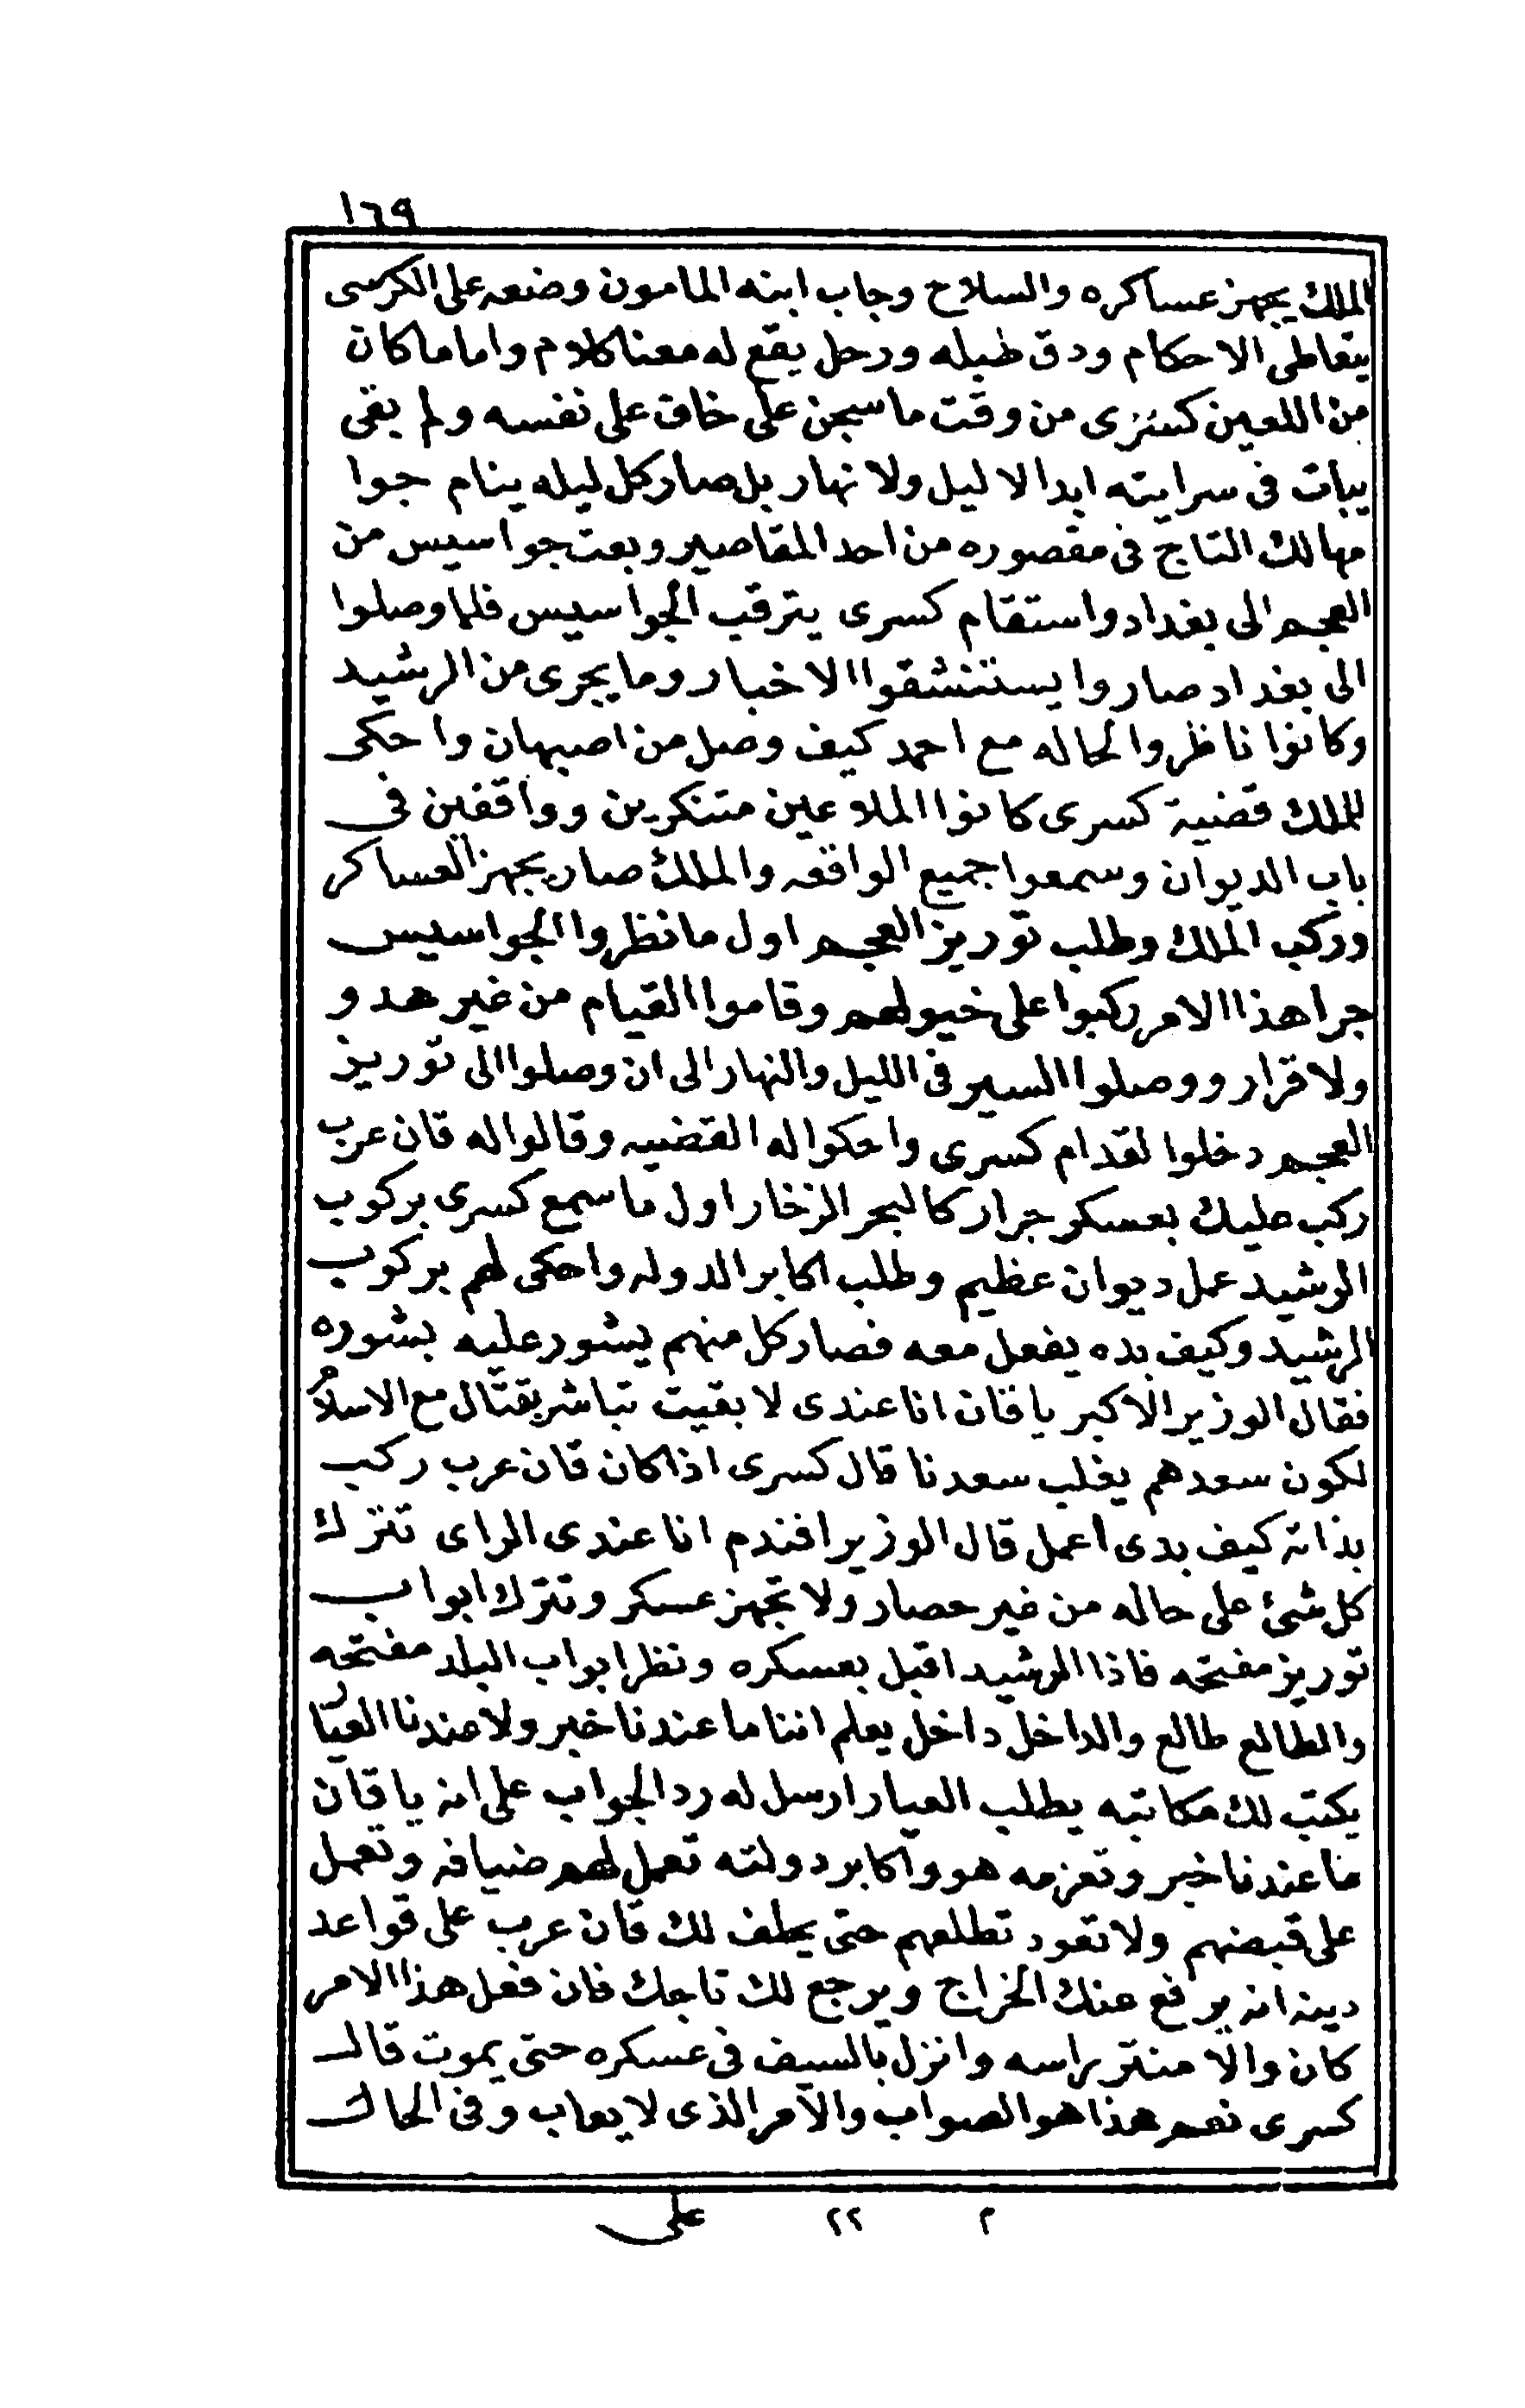 ١٦٩
الملك يجهز عساكره والسلاح وجاب ابنه المامون وضعه على الكرسى
يتعاطى الاحكام ودق طبله ورحل يقع له معنا كلام واما ما كان
من اللعين كسرى من وقت ما سجن على خاف على نفسه ولم بقى
يبات فى سرايته ابدا لا ليل ولا نهار بل صار كل ليله ينام جوا
مهالك التاج فى مقصوره من احد المقاصير وبعت جواسيس من
العجم الى بغداد واستقام كسرى يترقب الجواسيس فلما وصلوا
الى بغداد صاروا يستنشقوا الاخبار وما يجرى من الرشيد
وكانوا ناظروا لحاله مع احمد كيف وصل من اصبهان واحكى
للملك قضية كسرى كانوا الملاعين متنكرين وواقفين فى
باب الديوان وسمعوا جميع الواقعه والملك صار يجهز العساكر
وركب الملك وطلب توريز العجم اول ما نظروا الجواسيس
جرا هذا الامر ركبوا على خيولهم وقاموا القيام من غير هدو
ولا قرار ووصلوا السير فى الليل والنهار الى ان وصلوا الى توريز
العجم دخلوا لقدام كسرى واحكوا له القضيه وقالوا له قان عرب
ركب عليك بعسكر جرار كالبحر الزخار اول ما سمع كسرى بركوب
الرشيد عمل ديوان عظيم وطلب اكابر الدوله واحكى لهم بركوب
الرشيد وكيف بده يفعل معه فصار كل منهم يشور عليه بشوره
فقال الوزير الاكبر يا قان انا عندى لا بقيت تباشر بقتال مع الاسلام
لكون سعدهم يغلب سعدنا قال كسرى اذا كان قان عرب ركب
بذاته كيف بدى اعمل قال الوزير افندم انا عندى الراى تترك
كل شئ على حاله من غير حصار ولا تجهز عسكر وتترك ابواب
توريز مفتحه فاذا الرشيد اقبل بعسكره ونظر ابواب البلد مفتحه
والطالع طالع والداخل داخل يعلم اننا ما عندنا خبر ولا عندنا العيار
يكتب لك مكاتبه يطلب العيار ارسل له رد الجواب على انه يا قان
ما عندنا خبر وتعزمه هو واكابر دولته تعمل لهم ضيافه وتعمل
على قبضهم ولا تعود تطلعهم حتى يحلف لك قان عرب على قواعد
دينه انه يرفع عنك الخراج ويرجع لك تاجك فان فعل هذا الامر
كان والا منتر براسه وانزل بالسيف فى عسكره حتى يموت قال
كسرى نعم هذا هو الصواب والامر الذى لا يعاب وفى الحال
٢ ٢٢ على